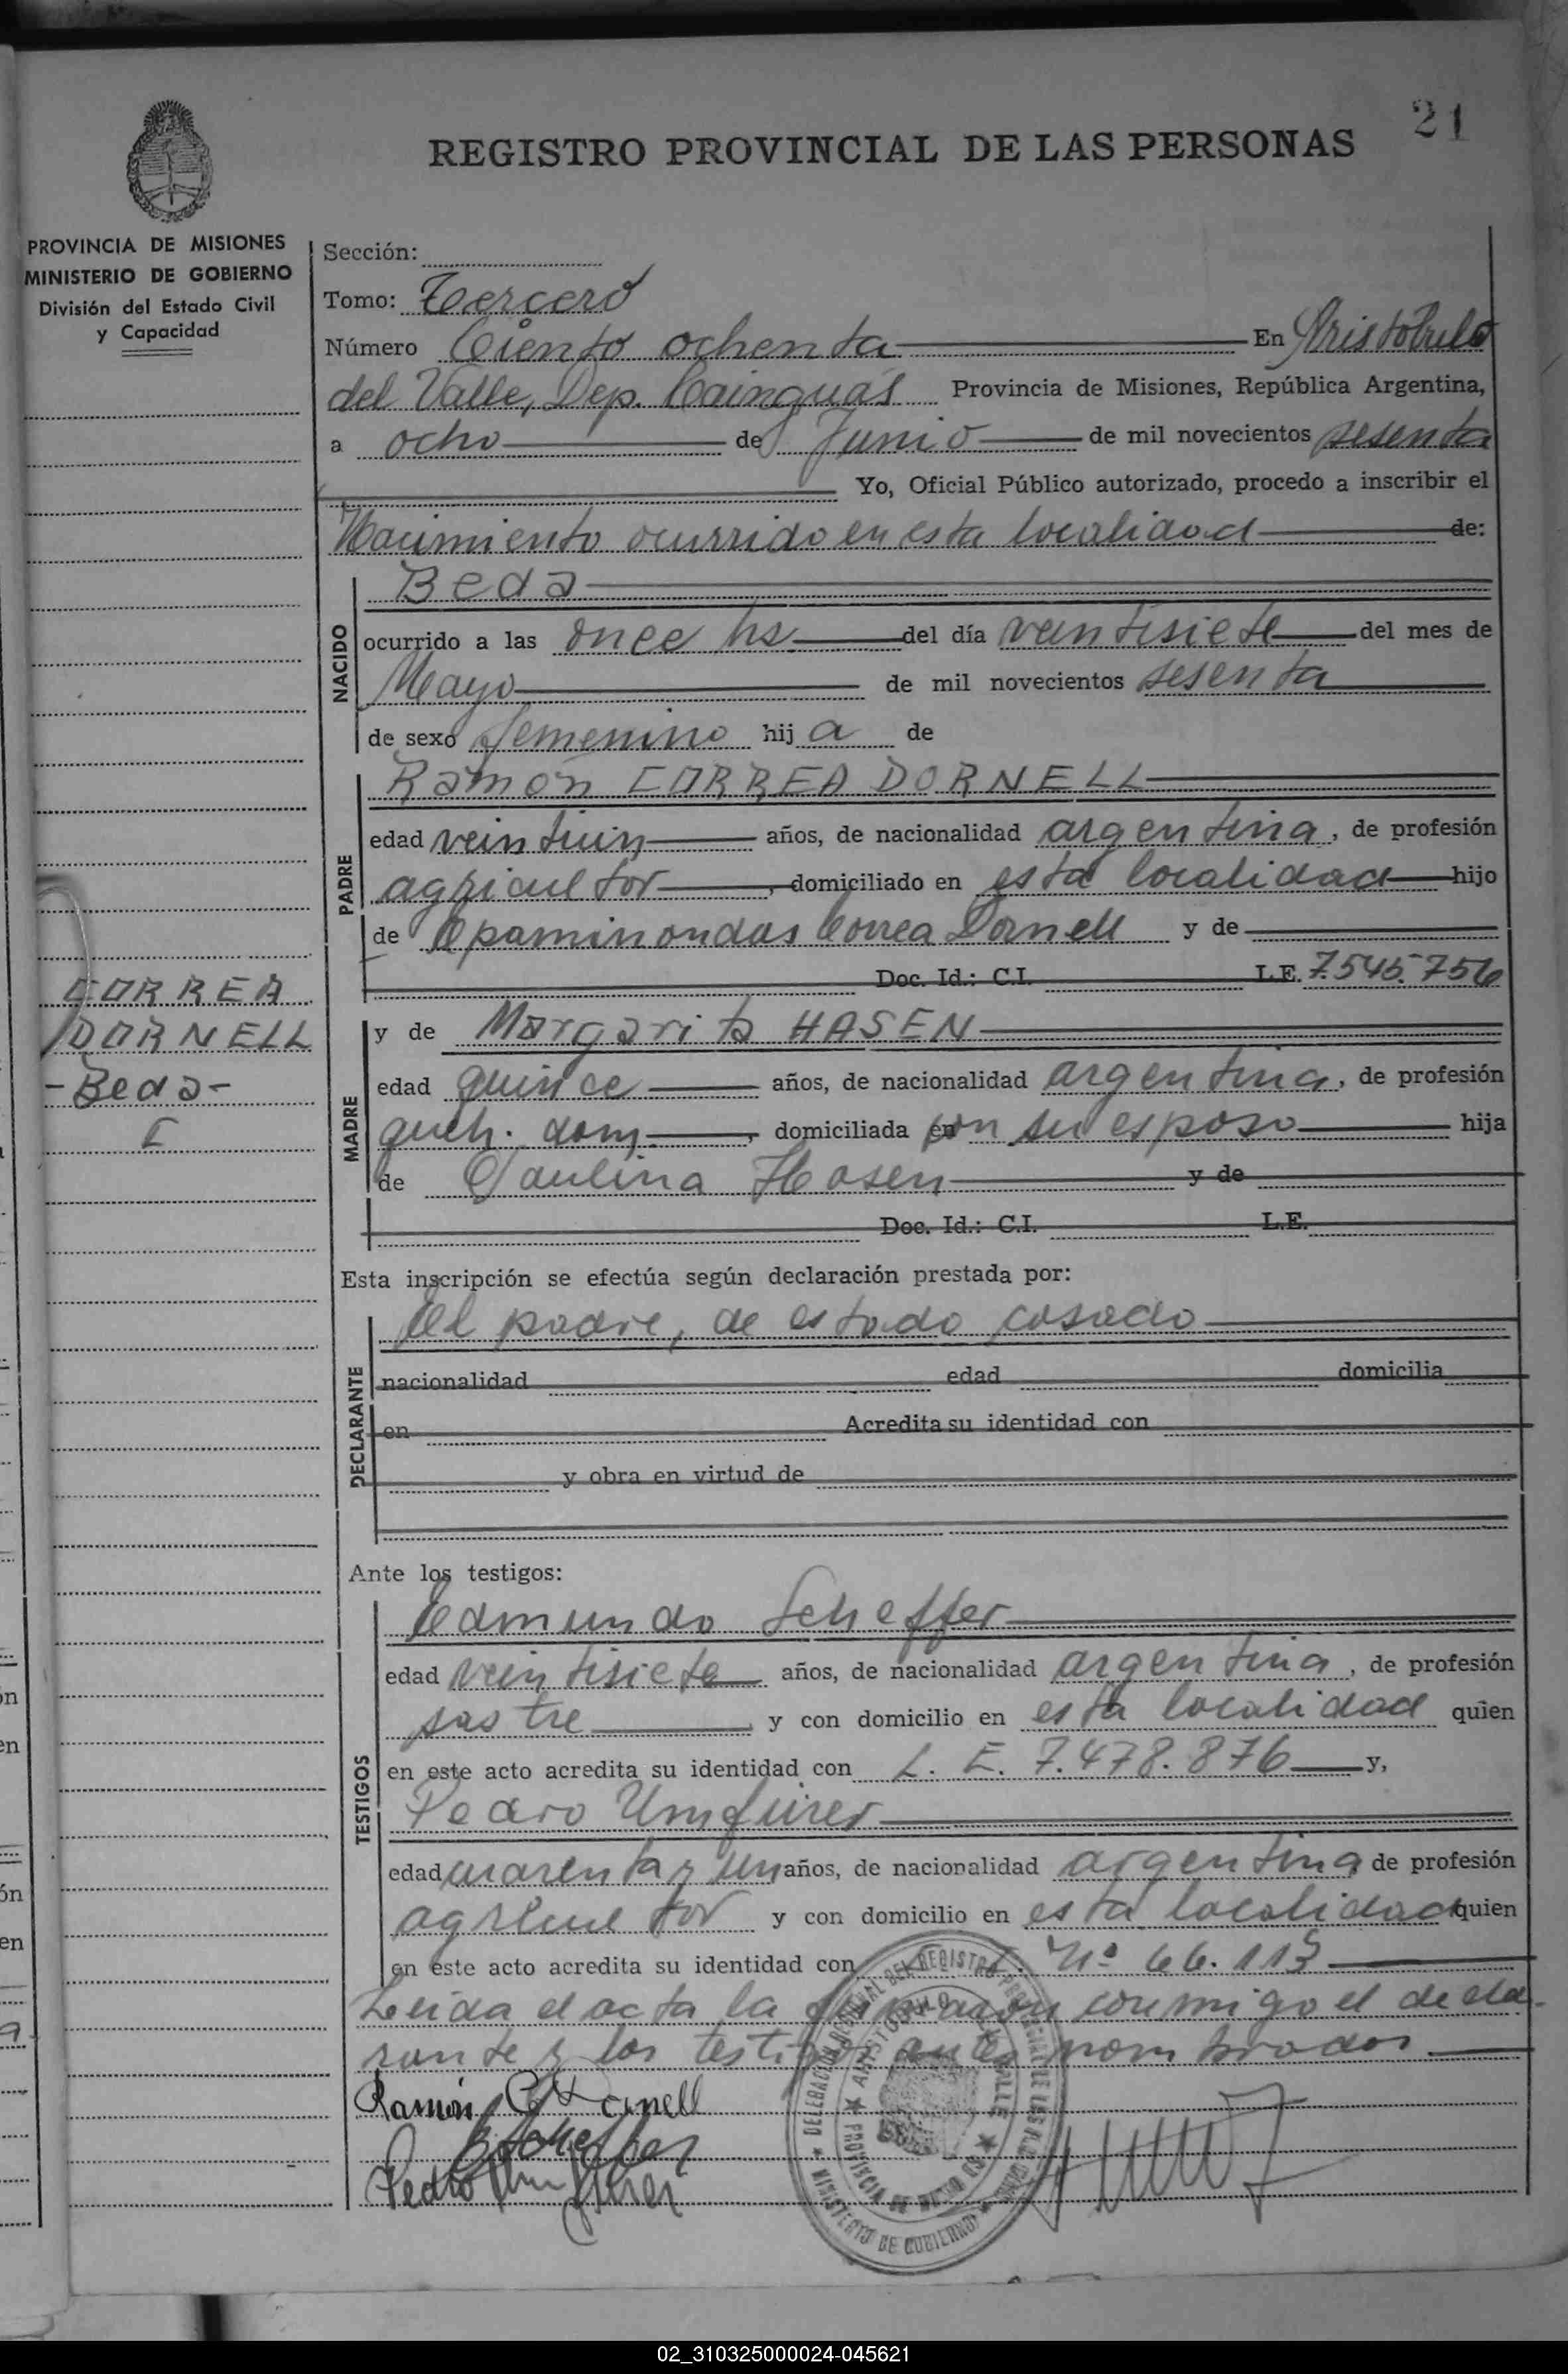 21
REGISTRO PROVINCIAL DE LAS PERSONAS
PROVINCIA DE MISIONES
MINISTERIO DE GOBIERNO
División del Estado Civil
y Capacidad
Sección:
Tomo: Tercero
Número Ciento ochenta En Aristóbulo
del Valle, Dep. Cainguás Provincia de Misiones, República Argentina,
a ocho de Junio de mil novecientos sesenta
Yo, Oficial Público autorizado, procedo a inscribir el
Nacimiento ocurrido en esta localidad de:
NACIDO
Beda
ocurrido a las once hs. del día veintisiete del mes de
Mayo de mil novecientos sesenta
de sexo femenino hij a de
PADRE
Ramón CORREA DORNELL
edad veintiún años, de nacionalidad argentina, de profesión
agricultor, domiciliado en esta localidad hijo
de Epaminondas Correa Dornell y de
Doc. Id.: C.I. L.E. 7.545.756
CORREA
DORNELL
-Beda-
MADRE
y de Margarita HASEN
edad quince años, de nacionalidad argentina, de profesión
queh. dom., domiciliada con su esposo hija
de Paulina Hasen y de
Doc. Id.: C.I. L.E.
Esta inscripción se efectúa según declaración prestada por:
DECLARANTE
El padre, de estado casado
nacionalidad edad domicilia
en Acredita su identidad con
y obra en virtud de
Ante los testigos:
TESTIGOS
Edmundo Scheffer
edad veintisiete años, de nacionalidad argentina, de profesión
sastre y con domicilio en esta localidad quien
en este acto acredita su identidad con L. E. 7.478.876 y,
Pedro Umfürer
edad cuarenta y un años, de nacionalidad argentina de profesión
agricultor y con domicilio en esta localidad quien
en este acto acredita su identidad con Nº 66.113
Leída el acta la firmaron conmigo el decla-
rante y los testigos antes nombrados
Ramón C. Dornell
Pedro Umfürer
02_310325000024-045621